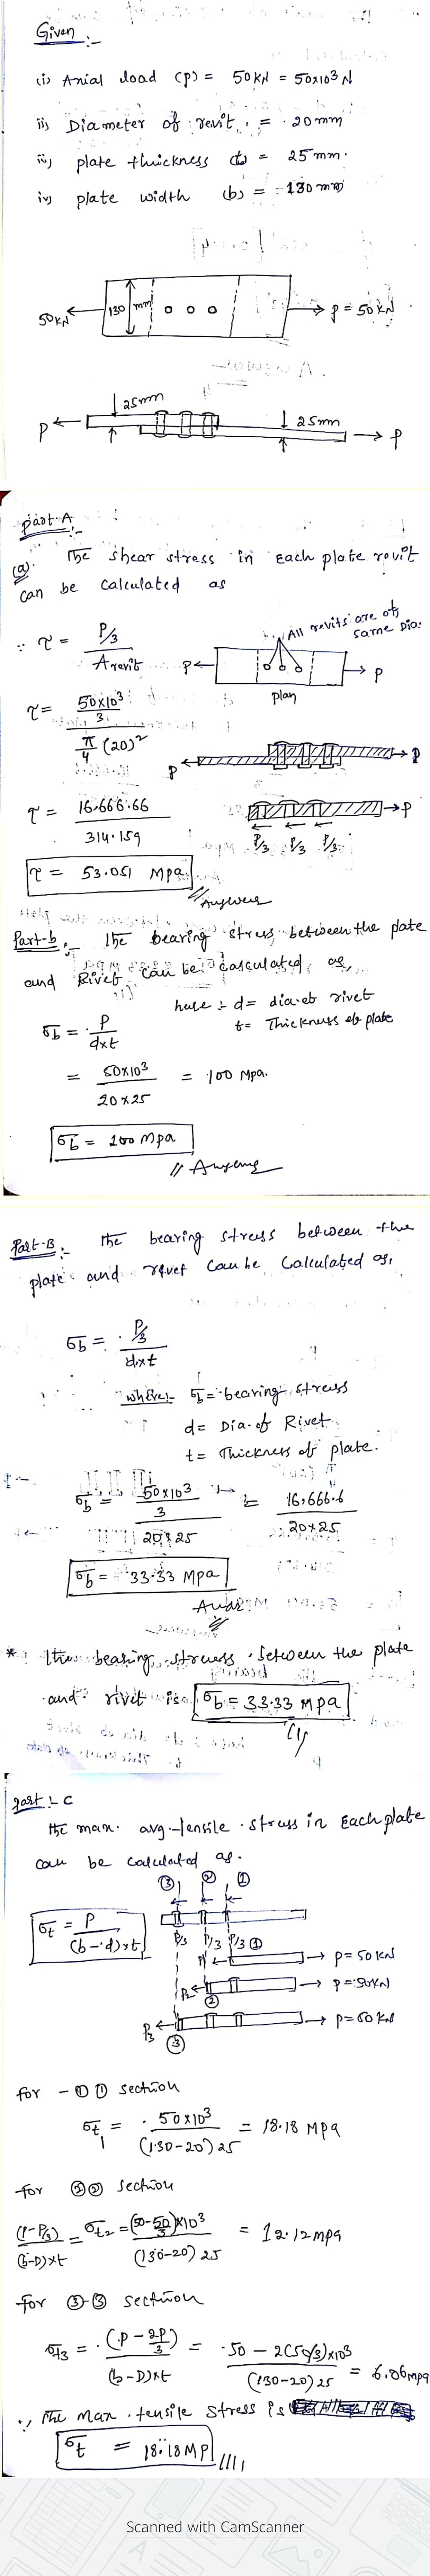 Given :-
(i) Axial load (P) = 50 KN = 50x10³ N
ii) Diameter of revit. = 20 mm
iii) plate thickness (t) = 25 mm.
iv) plate width (b) = 130 mm
50KN 130 mm P = 50 KN
25mm 25mm
P P
Part-A :-
(a). The shear stress in each plate rovit
can be calculated as
∵ τ = P/3 / A revit
All revits are of same Dia.
P P
plan
τ = 50x10³/3 / π/4 (20)²
P P
τ = 16.666.66 / 314.159
P
P/3 P/3 P/3
τ = 53.051 Mpa.
// Answer
Part-b :- The bearing stress between the plate
and Rivet can be calculated as,
here :- d = dia. of rivet
t = Thickness of plate
σb = P / dxt
= 50x10³ / 20x25 = 100 Mpa.
σb = 100 Mpa
// Answer
Part-B :- The bearing stress between the
plate and rivet can be calculated as,
σb = P/3 / dxt
where :- σb = bearing stress
d = Dia. of Rivet
t = Thickness of plate.
σb = 50x10³/3 / 20x25 = 16,666.6 / 20x25
σb = 33.33 Mpa
* The bearing stress between the plate
and rivit is σb = 33.33 Mpa
part :- C
The max. avg. tensile stress in Each plate
can be calculated as.
③ ② ①
σt = P / (b-d)xt
P/3 P/3 P/3 ①
P = 50 KN
② P = 50KN
③ P = 50 KN
for - ①① section
σt1 = 50x10³ / (130-20) 25 = 18.18 Mpa
for ②② section
(P-P/3) / (b-D)xt = σt2 = (50-50/3)x10³ / (130-20) 25 = 12.12 mpa
for ③-③ section
σt3 = (P - 2P/3) / (b-D)xt = 50 - 2(50/3)x10³ / (130-20) 25 = 6.06 mpa
∴ The max. tensile stress is
σt = 18.18 MP
Scanned with CamScanner